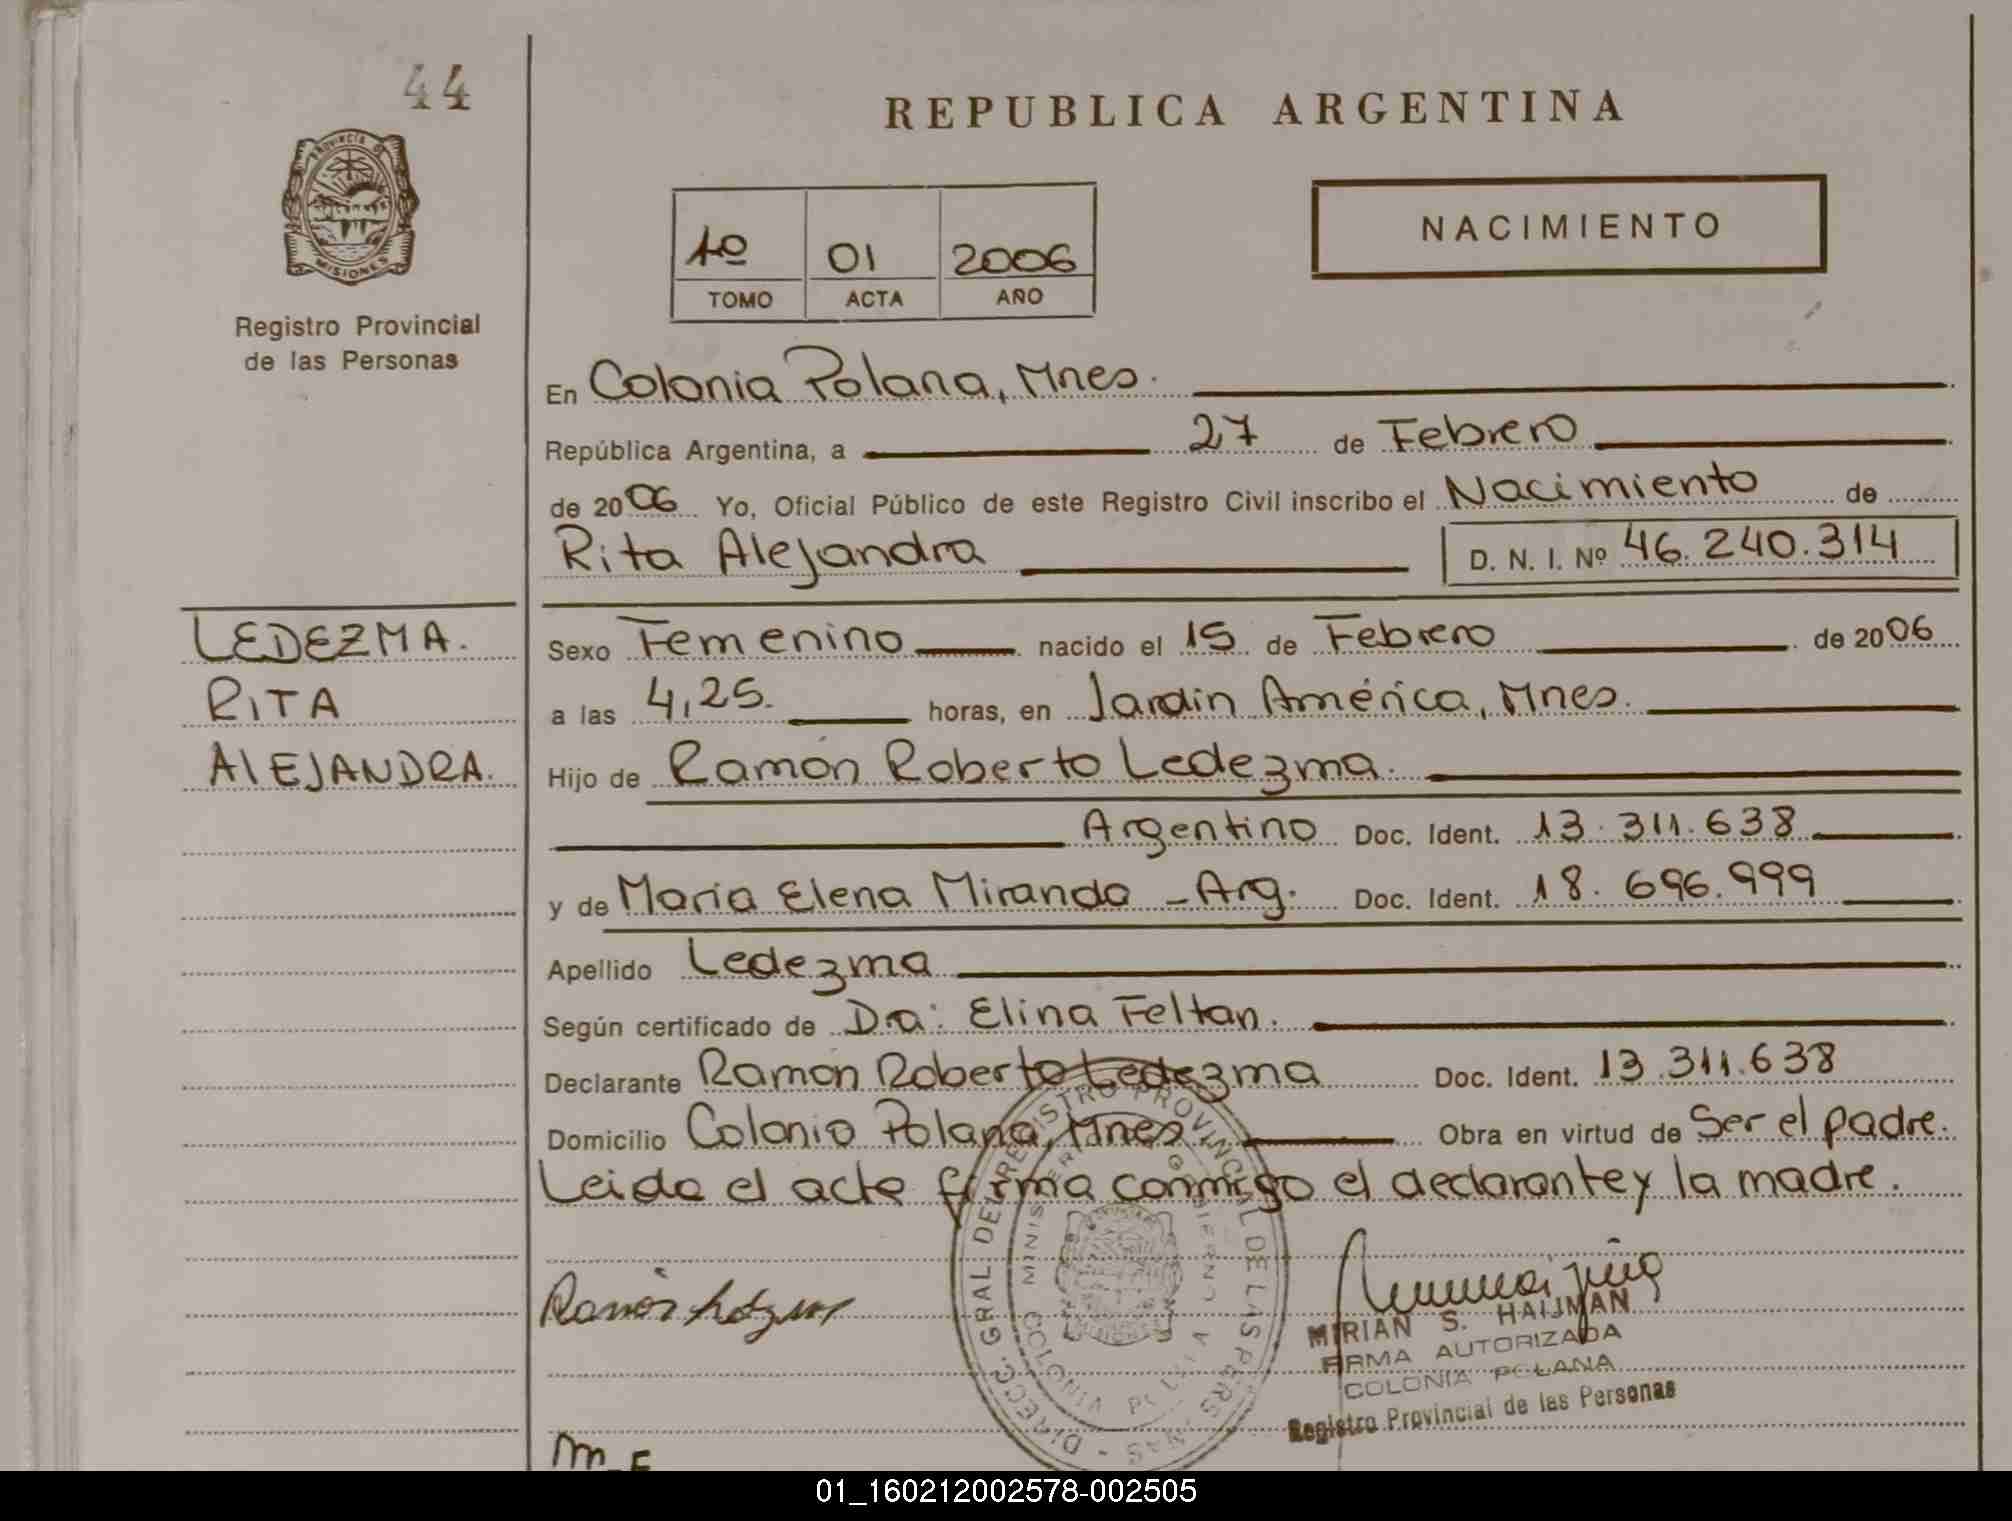 44
PROVINCIA DE
MISIONES
Registro Provincial
de las Personas
REPUBLICA ARGENTINA
1º 01 2006
TOMO ACTA AÑO
NACIMIENTO
En Colonia Polana, Mnes.
República Argentina, a 27 de Febrero
de 2006 Yo, Oficial Público de este Registro Civil inscribo el Nacimiento de
Rita Alejandra D. N. I. Nº 46.240.314
LEDEZMA.
RITA
AlEJANDRA.
Sexo Femenino nacido el 15 de Febrero de 2006
a las 4,25. horas, en Jardín América, Mnes.
Hijo de Ramón Roberto Ledezma.
Argentino Doc. Ident. 13.311.638
y de María Elena Miranda - Arg. Doc. Ident. 18.696.999
Apellido Ledezma
Según certificado de Dra: Elina Feltan.
Declarante Ramón Roberto Ledezma Doc. Ident. 13.311.638
Domicilio Colonia Polana, Mnes. Obra en virtud de Ser el padre.
Leida el acta firma conmigo el declarante y la madre.
DIRECC. GRAL DEL REGISTRO PROVINCIAL DE LAS PERSONAS
MIRIAN S. HAIJMAN
FIRMA AUTORIZADA
COLONIA POLANA
Registro Provincial de las Personas
01_160212002578-002505